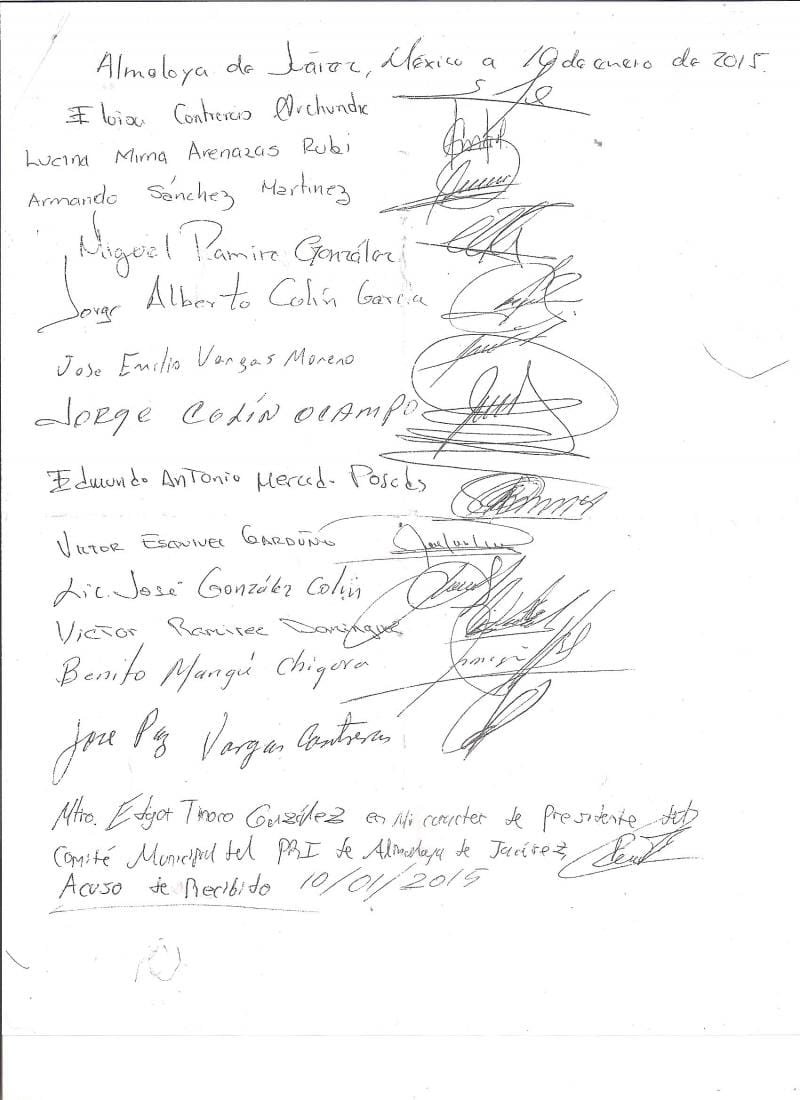 Almoloya de Juárez, México a 10 de enero de 2015.
Eloisa Contreras Archundia
Lucina Mirna Arenazas Rubi
Armando Sánchez Martinez
Miguel Ramirez González
Jorge Alberto Colín Garcia
Jose Emilio Vargas Moreno
JORGE COLÍN OCAMPO
Edmundo Antonio Merced Posadas
VICTOR ESQUIVEL GARDUÑO
Lic. José González Colín
Victor Ramirez Dominguez
Benito Mangú Chigora
Jose Paz Vargas Contreras
Mtro. Edgar Tinoco González en Mi caracter de Presidente del
Comité Municipal del PRI de Almoloya de Juárez
Acuso de Recibido 10/01/2015